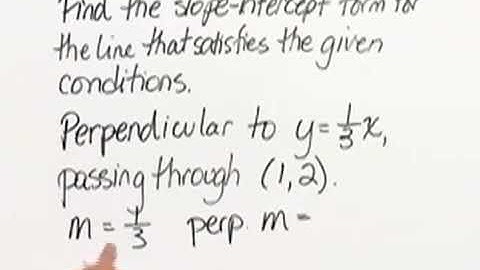 Find the slope-intercept form for
the line that satisfies the given
conditions.
Perpendicular to y=1/3x,
passing through (1,2).
m = 1/3 perp. m =